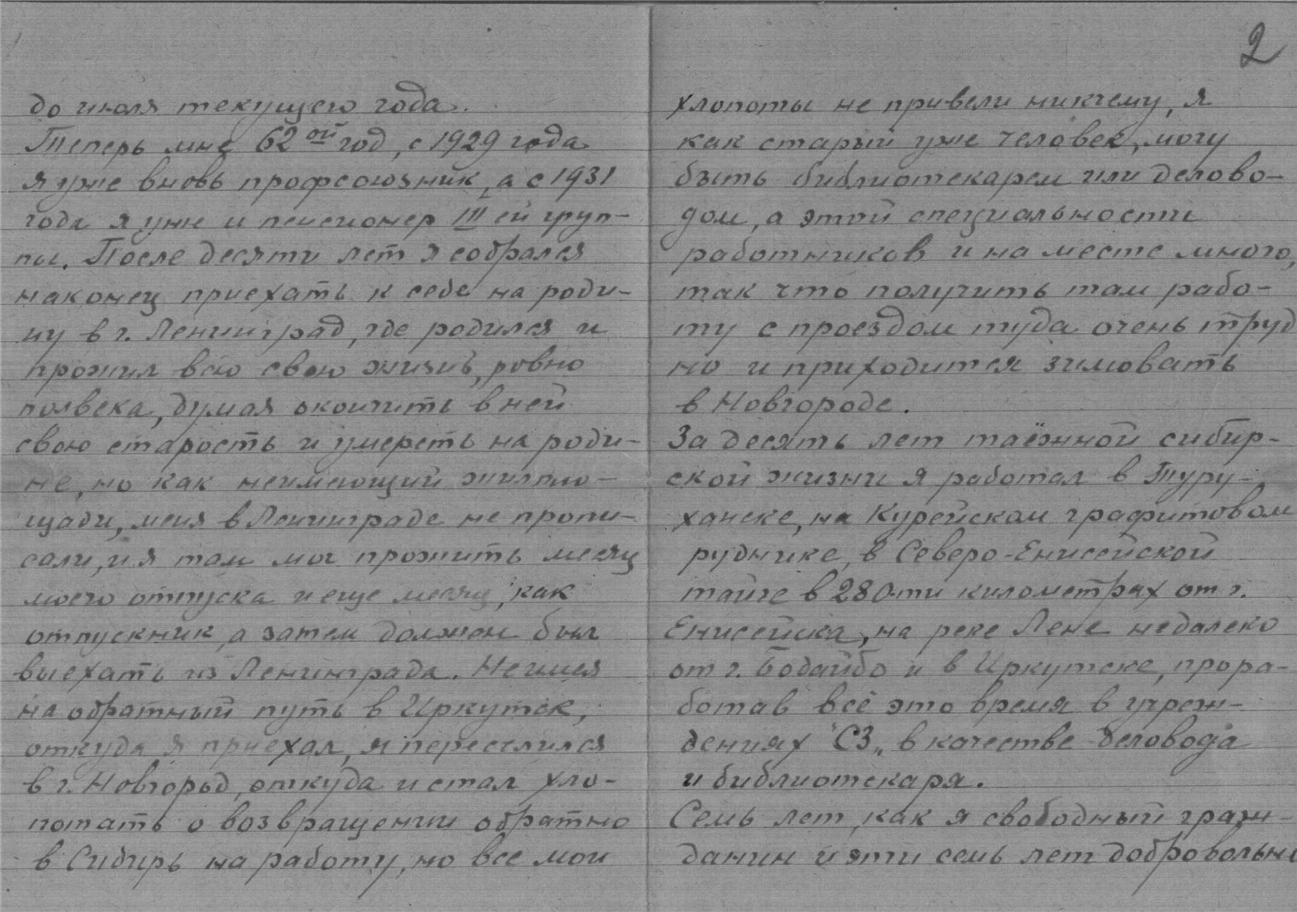 2
до июля текущего года.
Теперь мне 62ой год, с 1929 года
я уже вновь профсоюзник, а с 1931
года я уже и пенсионер III ей груп-
пы. После десяти лет я собрался
наконец приехать к себе на роди-
ну в г. Ленинград, где родился и
прожил всю свою жизнь, ровно
полвека, думая окончить в ней
свою старость и умереть на роди-
не, но как неимеющий жилпло-
щади, меня в Ленинграде не пропи-
сали, и я там мог прожить месяц
моего отпуска и еще месяц, как
отпускник, а затем должен был
выехать из Ленинграда. Не имея
на обратный путь в Иркутск,
откуда я приехал, я переселился
в г. Новгород, откуда и стал хло-
потать о возвращении обратно
в Сибирь на работу, но все мои
хлопоты не привели никчему, я
как старый уже человек, могу
быть библиотекарем или делово-
дом, а этой специальности
работников и на месте много,
так что получить там рабо-
ту с проездом туда очень труд
но и приходится зимовать
в Новгороде.
За десять лет таёжной сибир-
ской жизни я работал в Туру-
ханске, на Курейском графитовом
руднике, в Северо-Енисейской
тайге в 280-ти километрах от г.
Енисейска, на реке Лене недалеко
от г. Бодайбо и в Иркутске, прора-
ботав всё это время в учреж-
дениях "СЗ„ в качестве деловода
и библиотекаря.
Семь лет, как я свободный граж-
данин и эти семь лет добровольно